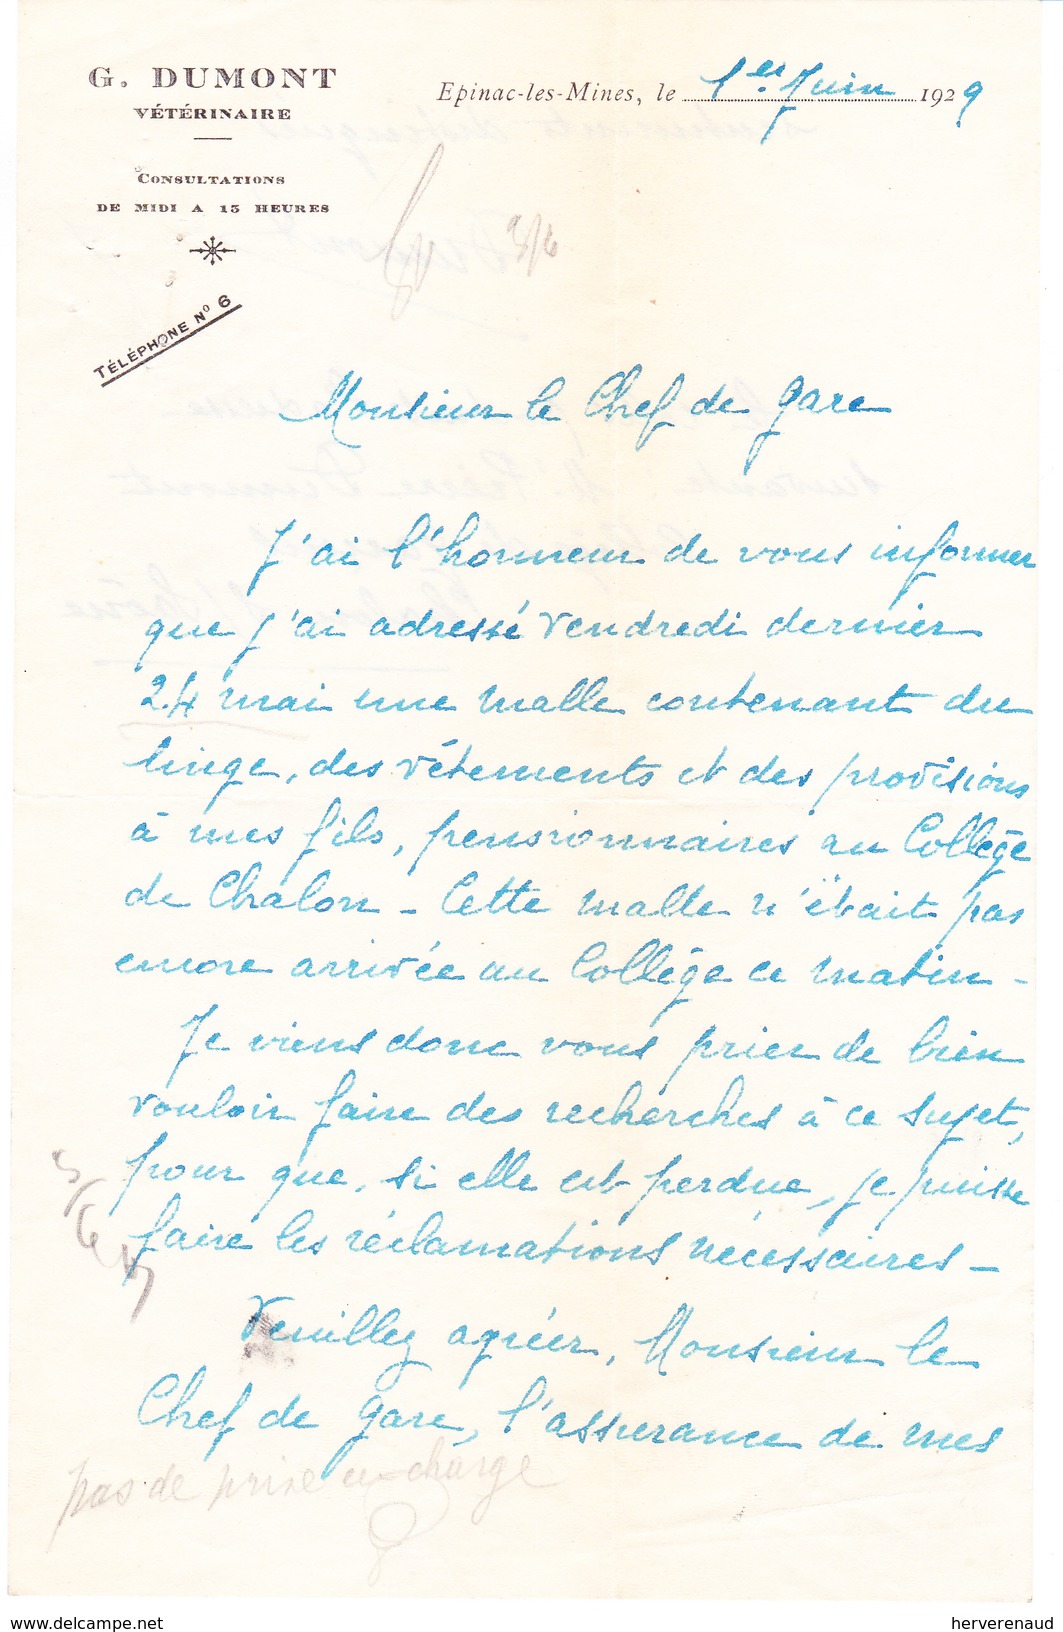 G. DUMONT
VÉTÉRINAIRE
CONSULTATIONS
DE MIDI A 15 HEURES
TÉLÉPHONE Nº 6
Epinac-les-Mines, le 1er Juin 1929
3/6
Monsieur le Chef de gare
J'ai l'honneur de vous informer
que j'ai adressé vendredi dernier
24 mai une malle contenant du
linge, des vêtements et des provisions
à mes fils, pensionnaires au Collège
de Chalon - Cette malle n'était pas
encore arrivée au Collège ce matin -
Je viens donc vous prier de bien
vouloir faire des recherches à ce sujet,
pour que, si elle est perdue, je puisse
faire les réclamations nécessaires -
Veuillez agréer, Monsieur le
Chef de gare, l'assurance de mes
pas de prise en charge
www.delcampe.net
herverenaud